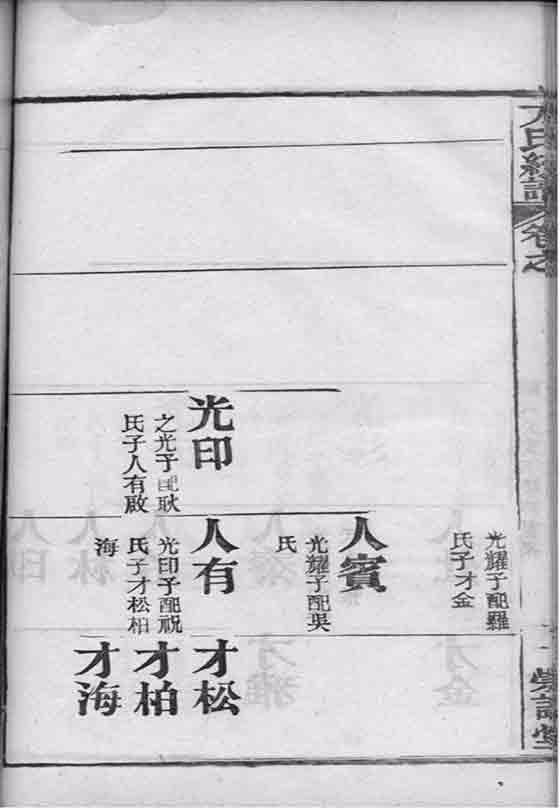 氏續譜
卷之
光耀子配羅
氏子才金
人賓
光耀子配吳
氏
光印
之光子配耿
氏子人有啟
人有
光印子配祝
氏子才松柏
海
才松
才柏
才海